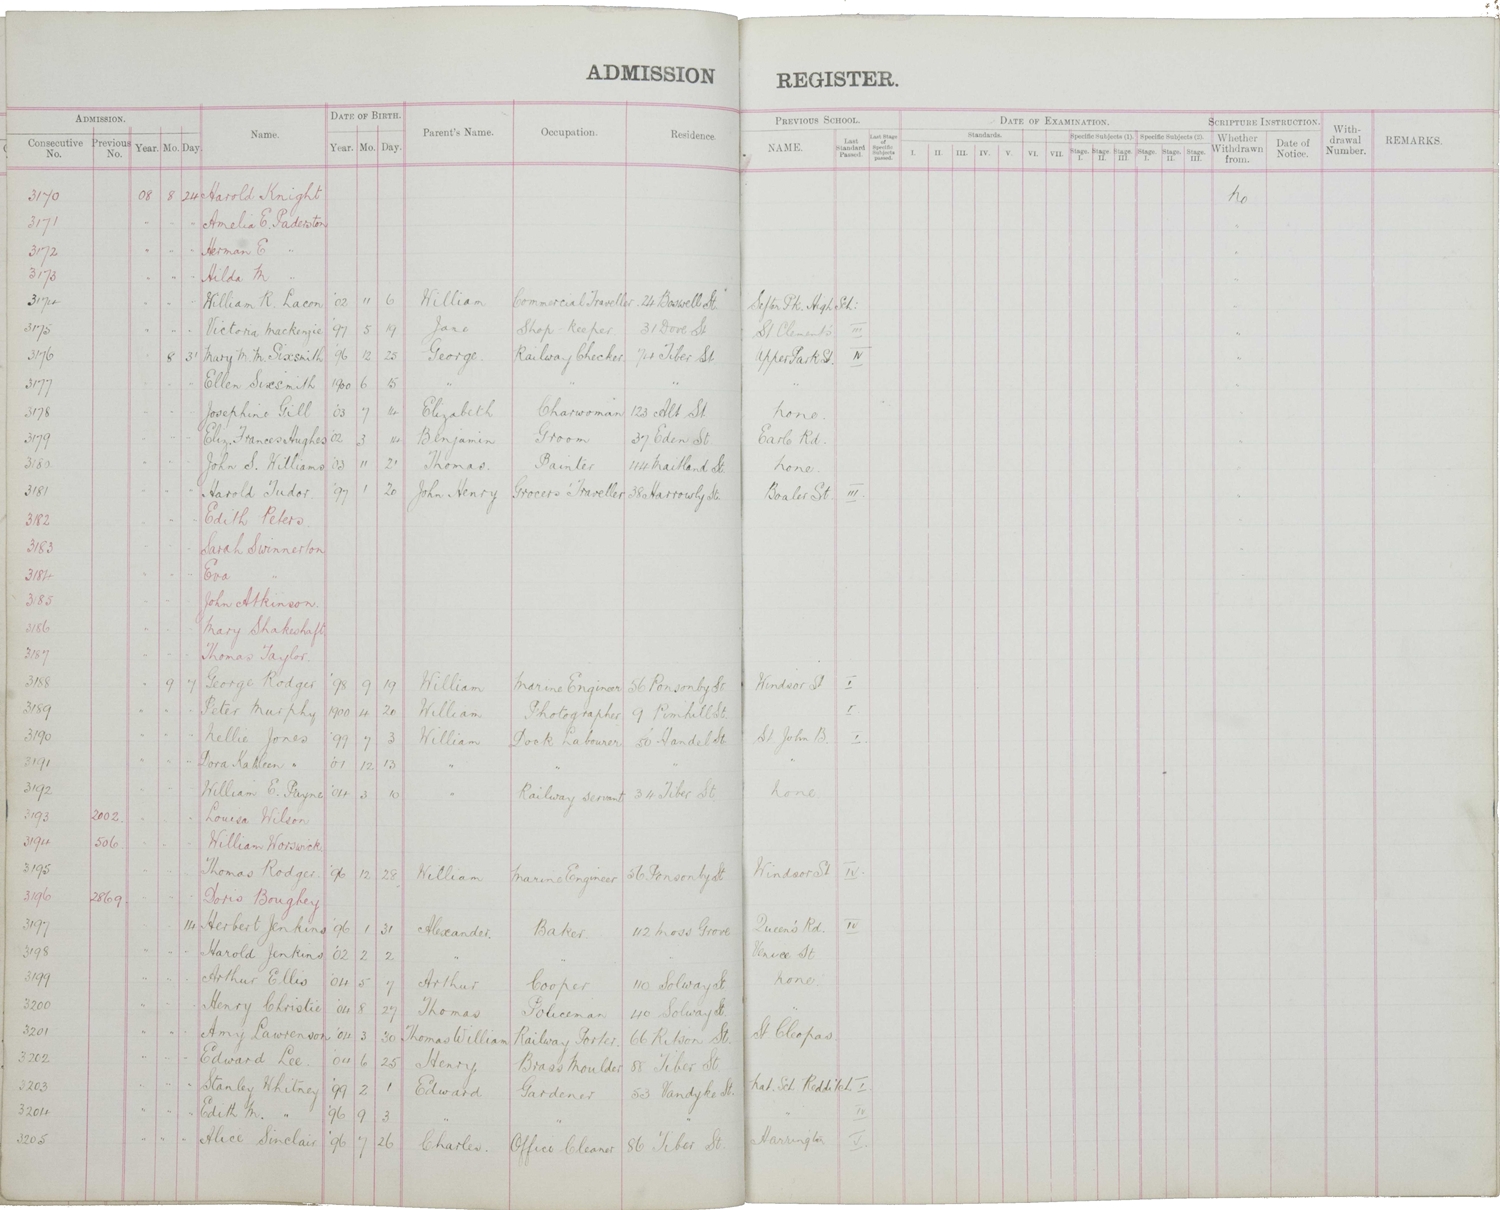 ADMISSION REGISTER.
ADMISSION. Name. DATE OF BIRTH. Parent's Name. Occupation. Residence. PREVIOUS SCHOOL. DATE OF EXAMINATION. SCRIPTURE INSTRUCTION. With-drawal Number. REMARKS.
Consecutive No. Previous No. Year. Mo. Day. Year. Mo. Day. NAME. Last Standard Passed. Last Stage of Specific Subjects passed. Standards. Specific Subjects (1). Specific Subjects (2). Whether Withdrawn from. Date of Notice.
I. II. III. IV. V. VI. VII. Stage. I. Stage. II. Stage. III. Stage. I. Stage. II. Stage. III.
3170 08 8 24 Harold Knight no
3171 " " " Amelia E. Paderston "
3172 " " " Herman E " "
3173 " " " Hilda M " "
3174 " " " William R. Lacen '02 11 6 William Commercial Traveller 24 Boswell St. Sefton Pk. High Sch: "
3175 " " " Victoria Mackenzie '97 5 19 Jane Shop-keeper 31 Dove St St Clement's III "
3176 8 31 Mary M. M. Sixsmith '96 12 25 George Railway Checker 74 Tiber St Upper Park St. IV "
3177 " " " Ellen Sixsmith 1900 6 15 " " " " "
3178 " " " Josephine Gill '03 7 14 Elizabeth Charwoman 123 Alt St none.
3179 " " " Eliz. Frances Hughes '02 3 14 Benjamin Groom 37 Eden St Earle Rd. "
3180 " " " John S. Williams '03 11 21 Thomas. Painter 114 Maitland St. none. "
3181 " " " Harold Tudor. '97 1 20 John Henry Grocers' Traveller 380 Harrowby St. Boaler St III. "
3182 " " " Edith Peters. "
3183 " " " Sarah Swinnerton "
3184 " " " Eva "
3185 " " " John Atkinson.
3186 " " " Mary Shakeshaft
3187 " " " Thomas Taylor.
3188 " 9 7 George Rodger '98 9 19 William Marine Engineer 56 Ponsonby St Windsor St I
3189 " " " Peter Murphy 1900 4 20 William Photographer 9 Pimhill St. I
3190 " " " Nellie Jones '99 7 3 William Dock Labourer 50 Handel St St John B. I.
3191 " " " Dora Kathleen " '01 12 13 " " " "
3192 " " " William E. Payne '04 3 10 " Railway servant 34 Tiber St none
3193 2002. " " " Louisa Wilson
3194 506. " " " William Worswick
3195 " " " Thomas Rodger '96 12 28 William Marine Engineer 56 Ponsonby St Windsor St IV.
3196 2869. " " " Doris Boughey
3197 14 Herbert Jenkins '96 1 31 Alexander. Baker 112 Moss Grove Queen's Rd. IV
3198 " " " Harold Jenkins '02 2 2 " " " Venice St
3199 " " " Arthur Ellis '04 5 7 Arthur Cooper 110 Solway St none
3200 " " " Henry Christie '04 8 27 Thomas Policeman 40 Solway St. "
3201 " " " Amy Lawrenson '04 3 30 Thomas William Railway Porter. 66 Kitson St. St Cleopas
3202 " " " Edward Lee. '04 6 25 Henry Brass Moulder 58 Tiber St.
3203 " " " Stanley Whitney '99 2 1 Edward Gardener 53 Vandyke St. Nat. Sch. Redditch I
3204 " " " Edith M. " '96 9 3 " " " " IV
3205 " " " Alice Sinclair '96 7 26 Charles. Office Cleaner 86 Tiber St. Harrington V.